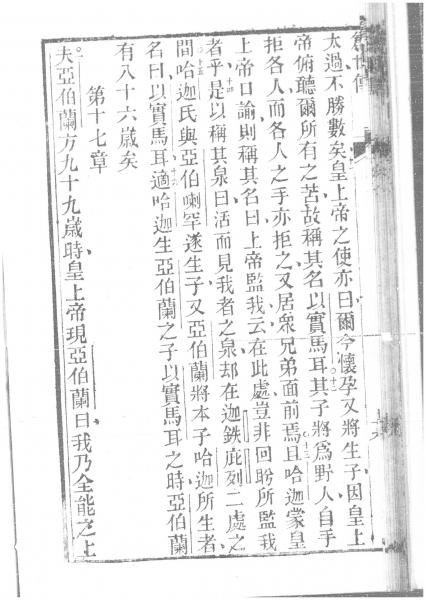 創世傳
太過不勝數矣皇上帝之使亦曰爾今懷孕又將生子因皇上
帝俯聽爾所有之苦故稱其名以實馬耳其子將為野人自手
十二
拒各人而各人之手亦拒之又居衆兄弟面前焉且哈迦蒙皇
十三
上帝口諭則稱其名曰上帝監我云在此處豈非回盻所監我
者乎是以稱其泉曰活而見我者之泉却在迦鉄庇列二處之
十四
間哈迦氏與亞伯喇罕遂生子又亞伯蘭將本子哈迦所生者
十五
名曰以實馬耳適哈迦生亞伯蘭之子以實馬耳之時亞伯蘭
十六
有八十六歲矣
第十七章
夫亞伯蘭方九十九歲時皇上帝現亞伯蘭曰我乃全能之上